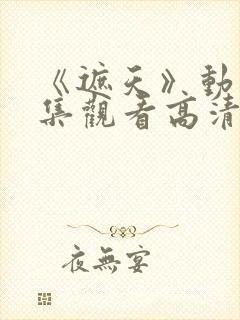 《遮天》動
集觀看高清
夜無宴